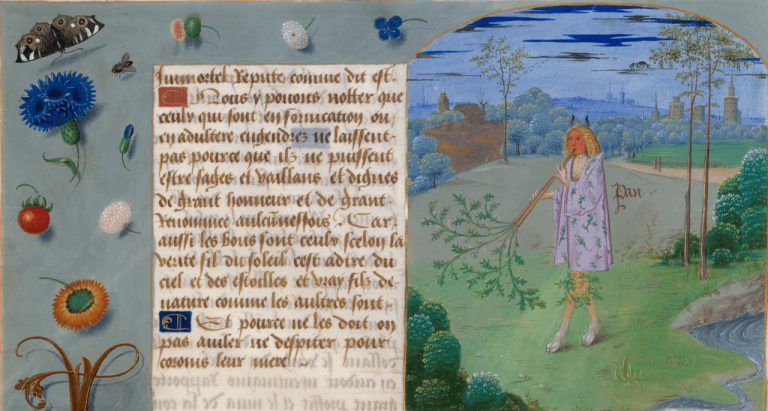 Immortel Repute comme dit est.
Nous y pouons notter que
ceulx qui sont en fornication ou
en adultere engendrez ne laissent
pas pource que ilz ne puissent
estre sages et vaillans et dignes
de grant honneur et de grant
Renommee aulcuneffois. Car
aussi les bons sont ceulx scelon la
verite filz du soleil cest adire du
ciel et des estoilles et vray filz de
nature comme les aultres sont.
Et pource ne les doit on
pas auiler ne despiter pour
corouis leur mere.
Pan